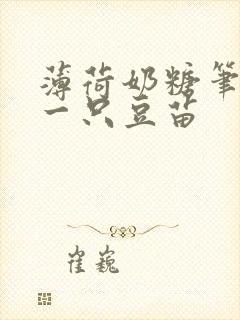 薄荷奶糖筆
一只豆苗
崔巍